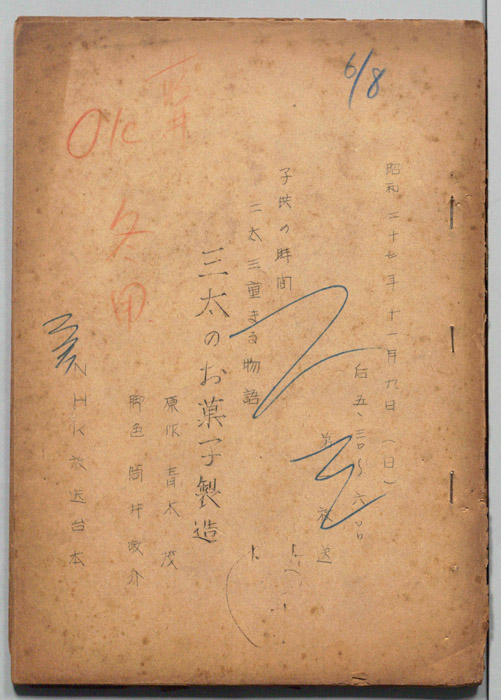 6/8
昭和二十七年十一月九日(日)
后五、三〇〜六、〇〇
第 放送
子供の時間
三太三重まる物語
三太のお菓子製造
原作 青木茂
脚色 筒井敬介
NHK放送台本
OK
冬田